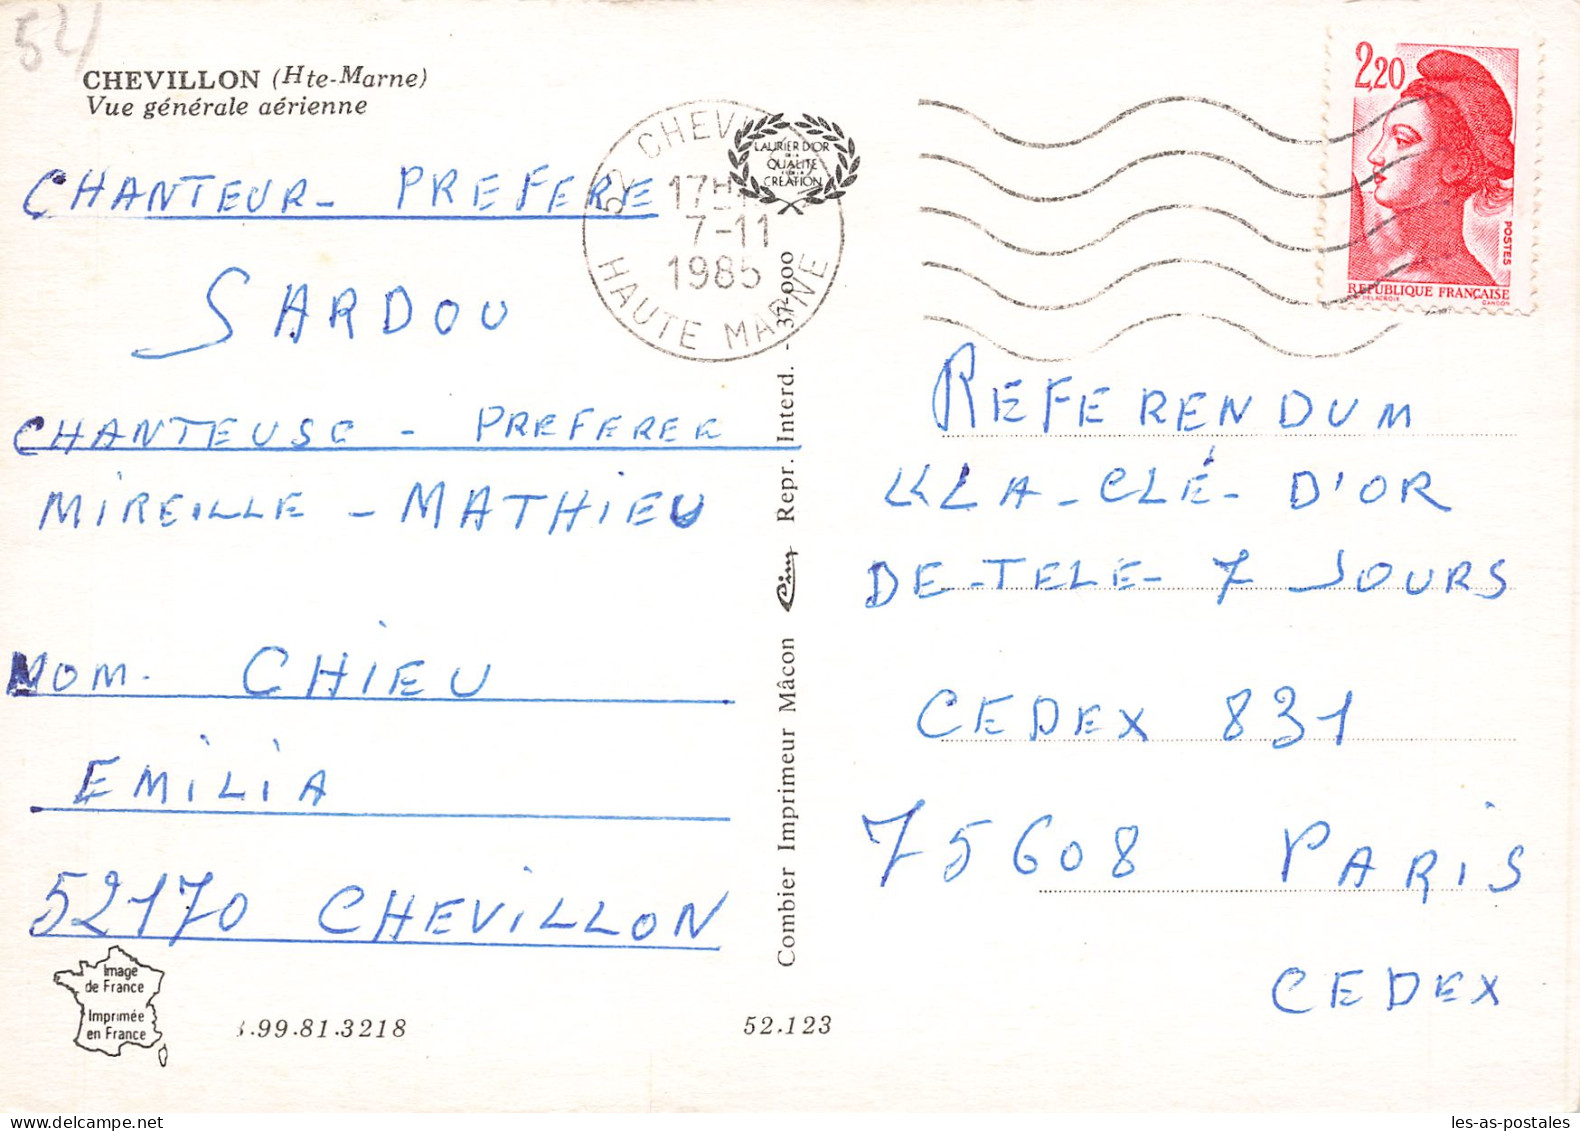 54
CHEVILLON (Hte-Marne)
Vue générale aérienne
CHANTEUR - PREFERE
SARDOU
CHANTEUSE - PREFERER
MIREILLE - MATHIEU
NOM. CHIEU
EMILIA
52170 CHEVILLON
Image
de France
Imprimée
en France
.99.81.3218
52.123
52 CHEV
17H
7-11
1985
HAUTE MARNE
LAURIER D'OR
DE LA
QUALITE
CREATION
Combier Imprimeur Mâcon Cim Repr. Interd. - 37-000
2,20
POSTES
REPUBLIQUE FRANÇAISE
DELACROIX
GANDON
REFERENDUM
«LA - CLÉ - D'OR
DE - TELE - 7 JOURS
CEDEX 831
75608 PARIS
CEDEX
les-as-postales